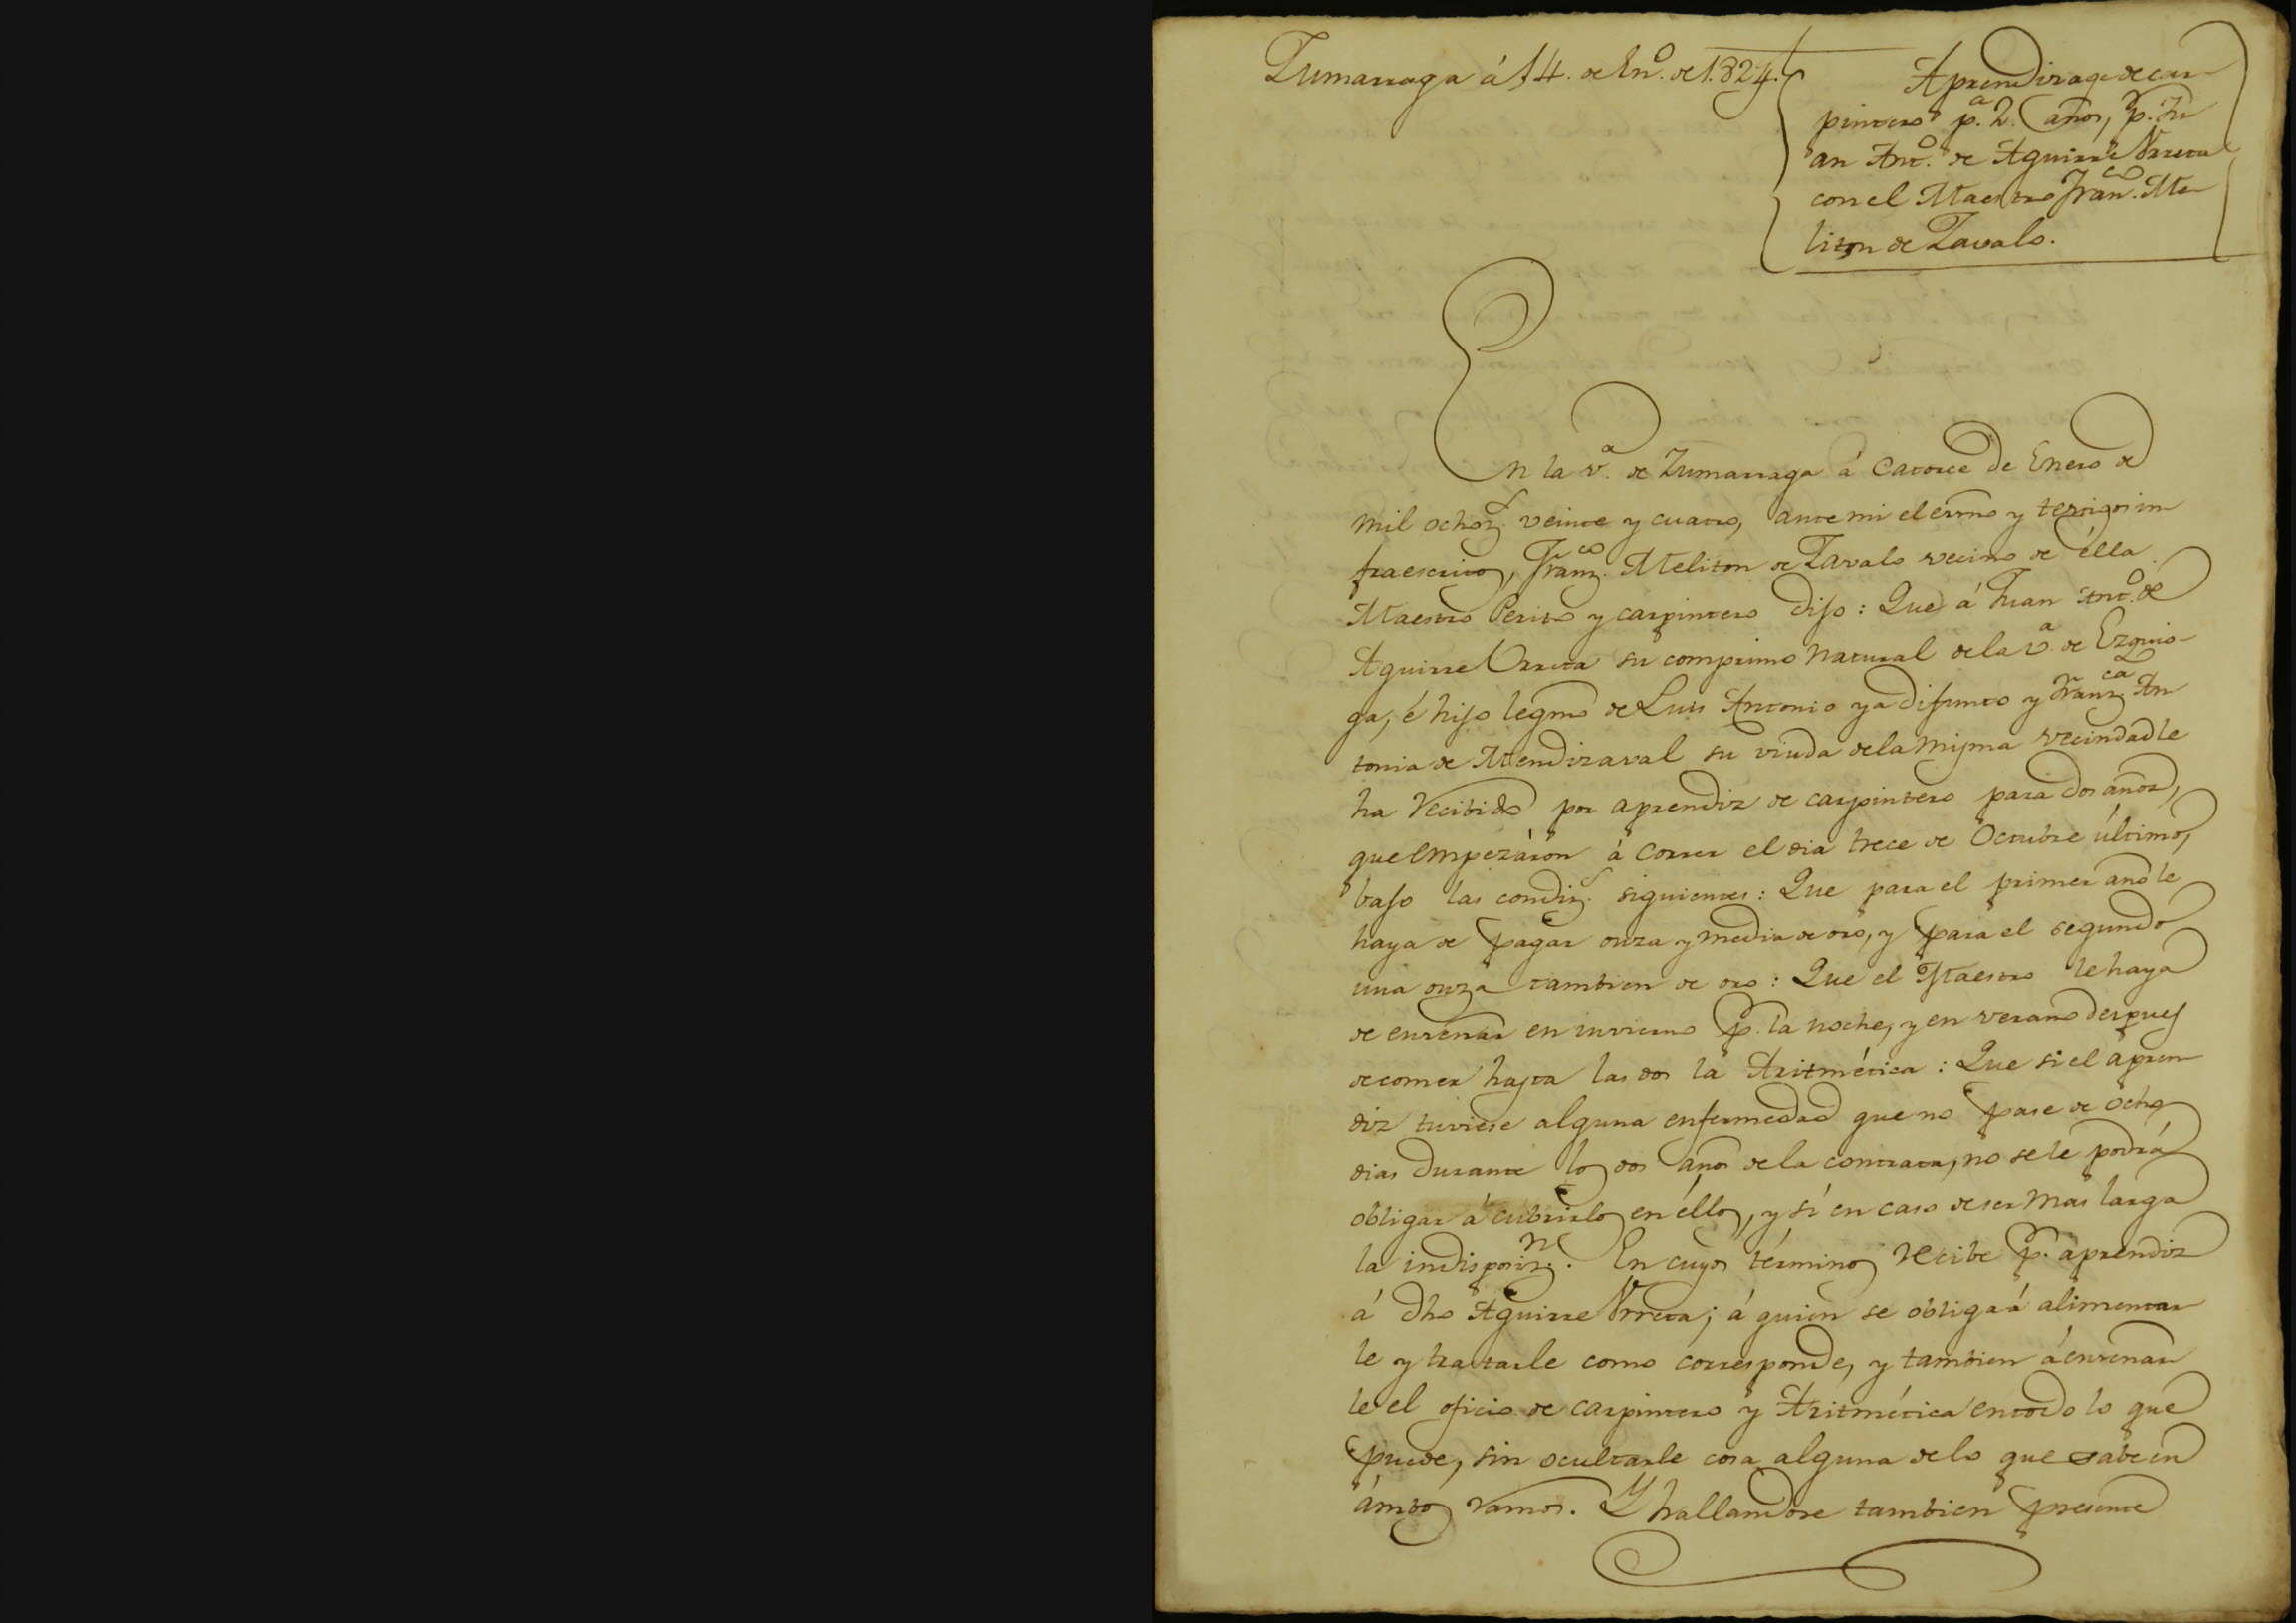 Zumarraga á 14. de En.º de 1.824.
Aprendizage de car-
pintero p.ª 2. años, p.r Ju-
an Ant.º de Aguirre Urreta
con el Maestro Fran.co Me-
liton de Zavalo.
En la v.ª de Zumarraga á Catorce de Enero de
mil ochoz.s veinte y cuatro, ante mi el esno y testigos in-
fraescritos, Franz.co Meliton de Zavalo vecino de élla
Maestro Perito y carpintero dijo: Que á Juan Ant.º de
Aguirre Urreta su comprimo natural de la v.ª de Ezquio-
ga, é hijo legmo de Luis Antonio ya difunto y Franz.ca An-
tonia de Mendizaval su viuda de la misma vecindad le
ha recibido por aprendiz de carpintero para dos años,
que empezáron á correr el dia trece de Octubre último,
bajo las condiz.s siguientes: Que para el primer año le
haya de pagar onza y media de oro, y para el segundo
una onza tambien de oro: Que el Maestro le haya
de enseñar en invierno p.r la noche, y en verano despues
de comer hasta las dos la Aritmética: Que si el apren-
diz tuviese alguna enfermedad que no pase de ocho
dias durante los dos años de la contrata, no se le podrá
obligar á cubrirlos en éllos, y sí en caso de ser mas larga
la indisposiz.n. En cuyos términos recibe p.r aprendiz
á dho Aguirre Urreta; á quien se obliga á alimentar-
le y tratarle como corresponde, y tambien á enseñar-
le el oficio de carpintero y Aritmética en todo lo que
puede, sin ocultarle cosa alguna de lo que sabe en
ámbos ramos. Y hallandose tambien presente